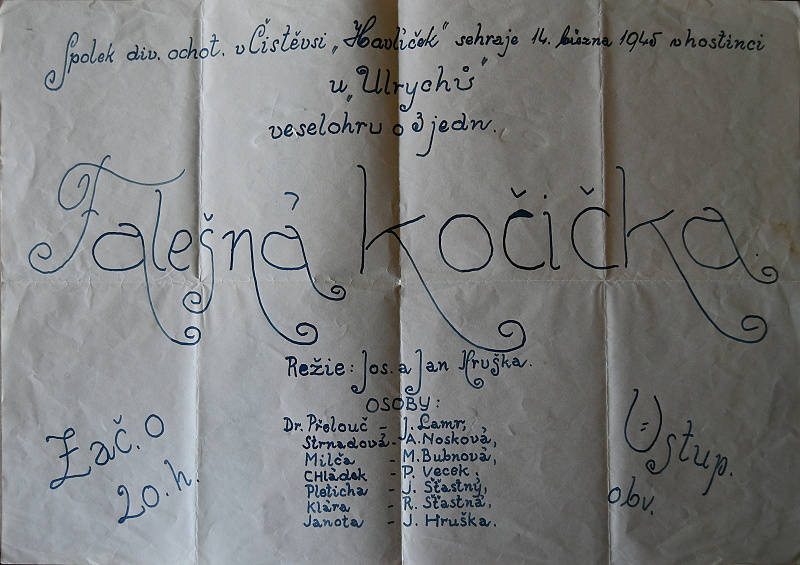 Spolek div. ochot. v Čistěvsi „Havlíček" sehraje 14. března 1945 v hostinci
u „Ulrychů"
veselohru o 3 jedn.
Falešná kočička.
Režie: Jos. a Jan Hruška.
OSOBY:
Dr. Přelouč - J. Lamr,
Strnadová - A. Nosková,
Milča - M. Bubnová,
Chládek - P. Vecek,
Pleticha - J. Šťastný,
Klára - R. Šťastná,
Janota - J. Hruška.
Zač. o
20. h.
Vstup.
obv.